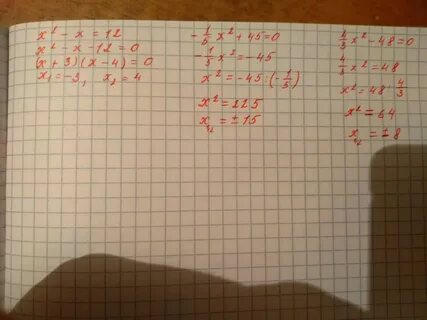 x² - x = 12
x² - x - 12 = 0
(x + 3)(x - 4) = 0
x₁ = -3, x₂ = 4
-1/5 x² + 45 = 0
-1/5 x² = -45
x² = -45 : (-1/5)
x² = 225
x₁,₂ = ± 15
4/3 x² - 48 = 0
4/3 x² = 48
x² = 48 · 4/3
x² = 64
x₁,₂ = ± 8